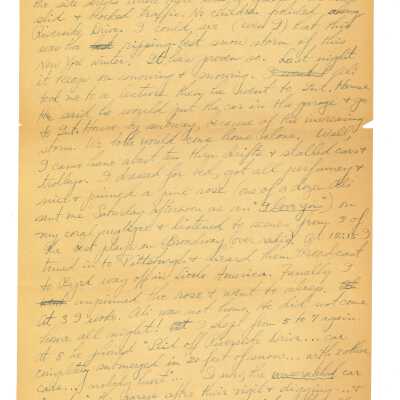 the
slid & blocked traffic. No children
Riverside Drive. I could see (even I) that this
was the ripping-est snow storm of this
New York winter. It has proven so. Last night
it keeps on snowing & snowing.
took me to a lecture then we went to Int. House
He said he would put the car in the garage & go
to Int. House by subway, because of the increasing
storm. He told would come home alone. Well,
I came home about ten thru drifts & stalled cars &
trolleys. I dressed for bed, got all perfumey &
nice & pinned a pink rose (one of a dozen Ali
sent me Saturday afternoon as an "I love you") on
my coral négligée & listened to scenes from 3 of
the best plays on Broadway (over radio). At 10:15 I
tuned in to Pittsburgh & heard them broadcast
to Byrd way off in Little America. Finally I
unpinned the rose & went to sleep.
At 3 I woke. Ali was not home. He did not come
home all night! I slept from 5 to 7 again.
At 8 he phoned "Slid off Riverside Drive... car
completely submerged in 20 feet of snow... with other
cars... nobody hurt"...
garage after their night & digging